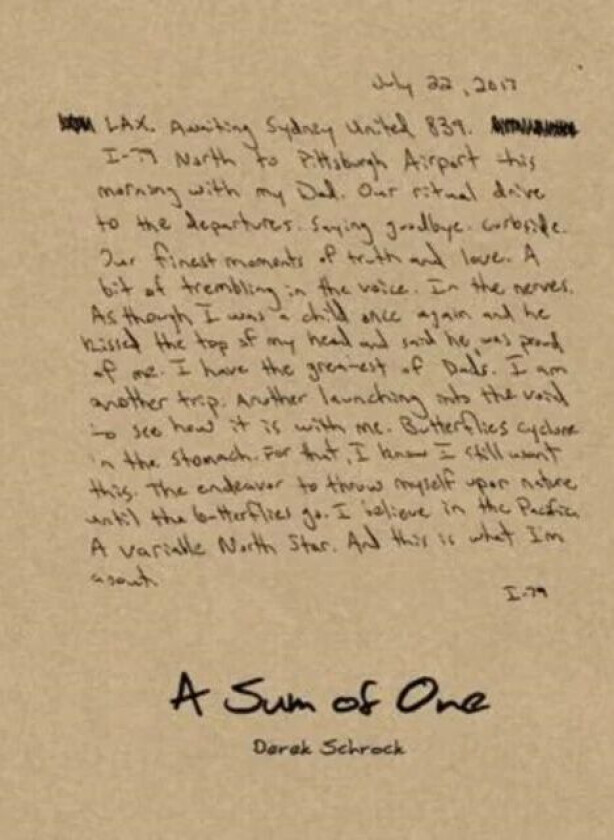 July 22, 2017
LAX. Awaiting Sydney United 839.
I-79 North to Pittsburgh Airport this
morning with my Dad. Our ritual drive
to the departures. Saying goodbye. Curbside.
Our finest moments of truth and love. A
bit of trembling in the voice. In the nerves.
As though I was a child once again and he
kissed the top of my head and said he was proud
of me. I have the greatest of Dads. I am
another trip. Another launching into the void
to see how it is with me. Butterflies cyclone
in the stomach. For that, I know I still want
this. The endeavor to throw myself upon nature
until the butterflies go. I believe in the Pacific.
A variable North Star. And this is what I'm
about
I-79
A Sum of One
Derek Schrock